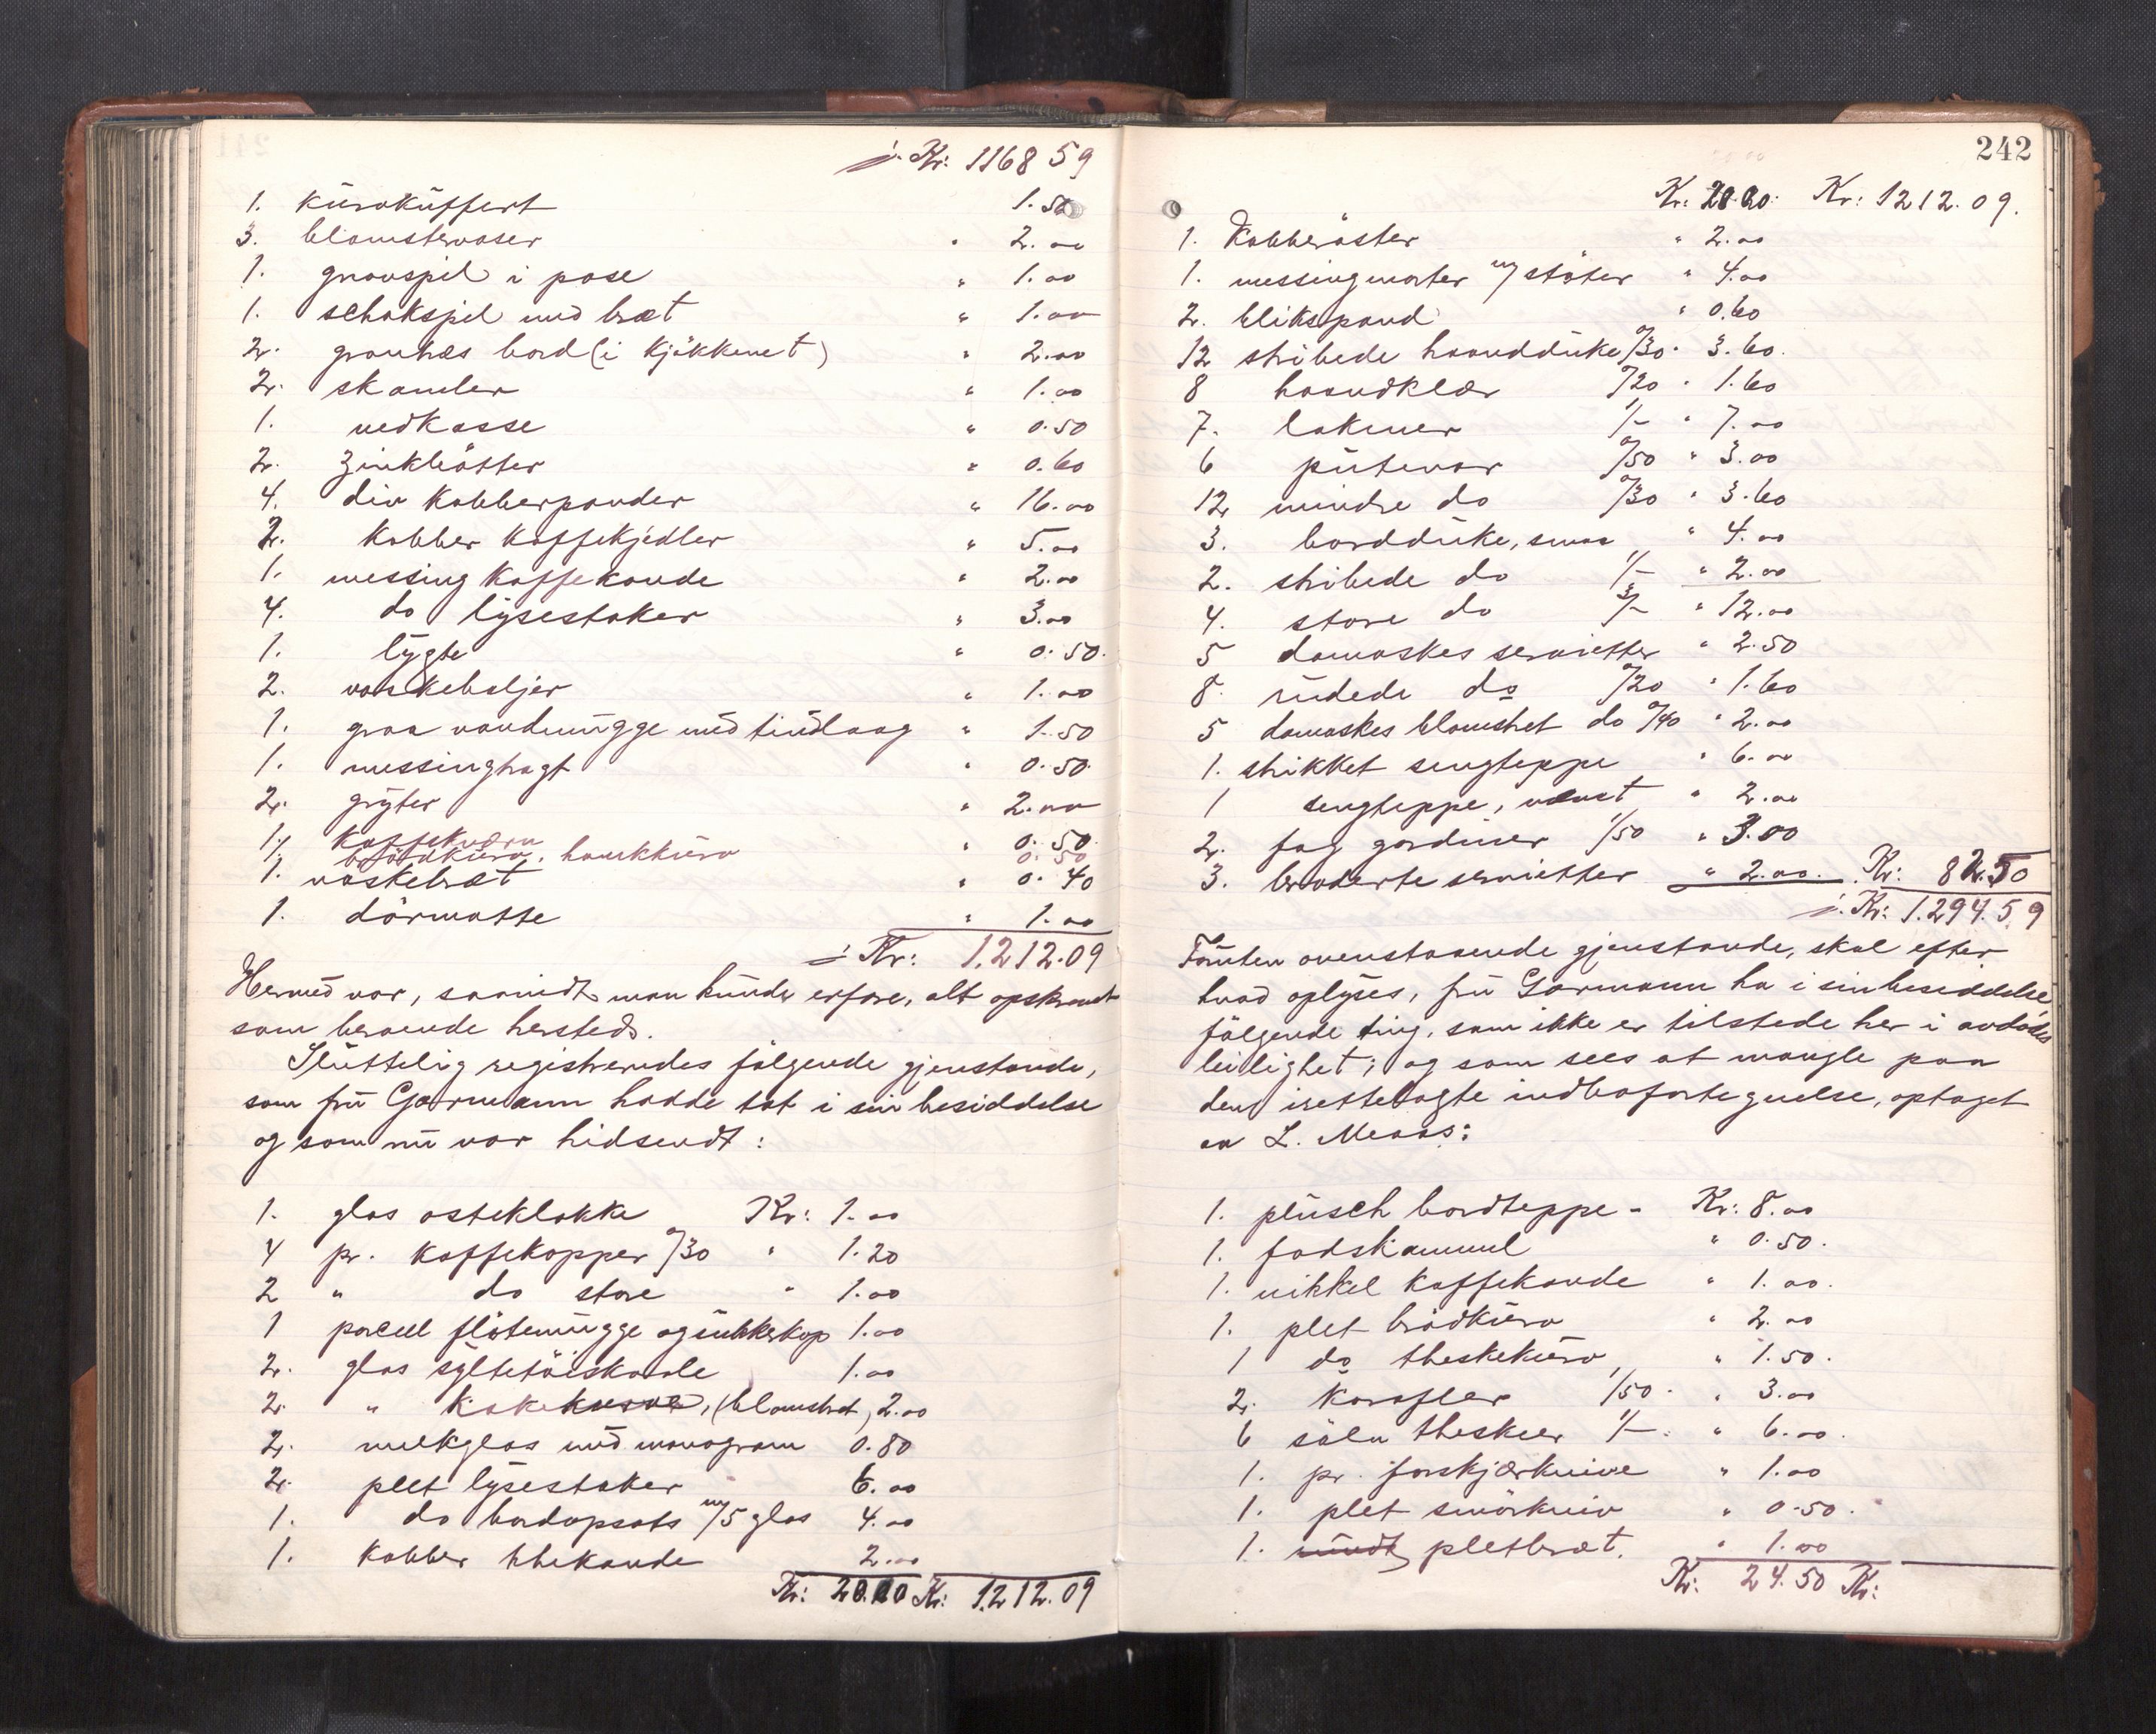 ÷ Kr: 1168 59
1. kürvküffert 1.50
3. blomstervaser " 2.00
1. gnavspil i pose " 1.00
1. schakspil med bræt " 1.00
2. granbæs bord (i kjökkenet) " 2.00
2. skamler " 1.00
1. vedkasse " 0.50
2. zinkbötter " 0.60
4. div kobberpander " 16.00
2. kobber kaffekjedler " 5.00
1. messing kaffekande " 2.00
4. do lysestaker " 3.00
1. lygte " 0.50.
2. vaskebaljer " 1.00
1. graa vandmügge med tindlaag " 1.50
1. messingtragt " 0.50
2. gryter " 2.00
1. kaffekværn " 0.50
1. brödkürv, hankkürv 0.50
1. vaskebræt " 0.40
1. dörmatte " 1.00
÷ Kr: 1.212.09
Hermed var, saavidt man künde erfare, alt opskrevet
som beroende hersteds.
Slüttelig registreredes fölgende gjenstande,
som frü Garmann hadde tat i sin besiddelse
og som nü var hidsendt:
1. glas osteklokke Kr: 1.00
4 pr. kaffekopper 0/30 " 1.20
2 " do store " 1.00
1 porcel flötemügge og sükkerkop 1.00
2. glas syltetöiskaale 1.00
2. " kakekurve, (blomstret) 2.00
2. melkglas med monogram 0.80
2. plet lysestaker 6.00
1. do bordopsats m/5 glas 4.00
1. kobber thekande 2.00
Kr: 20.00 Kr: 1.212.09
242
Kr: 20.00. Kr: 1212.09.
1. Kobberöster " 2.00
1. messingmorter m/ stöter " 4.00
2. blikspand " 0.60
12 stribede haanddüke 0/30 " 3.60.
8 haandklær 0/20 " 1.60
7. lakener 1/- " 7.00
6 pütevar 0/50 " 3.00
12 mindre do 0/30 " 3.60
3. borddüke, smaa " 4.00
2. stribede do 1/- " 2.00
4. store do 3/- " 12.00
5 damaskes servietter " 2.50
8. rüdede do 0/20 " 1.60
5 damaskes blomstret do 0/40 " 2.00
1. strikket sengteppe " 6.00
1 sengteppe, vævet " 2.00
2. fag gardiner 1/50 " 3.00
3. broderte servietter " 2.00. Kr: 82.50
÷ Kr: 1.294.59
Foruten ovenstaaende gjenstande, skal efter
hvad oplyses, frü Garmann ha i sin besiddelse
fölgende ting, som ikke er tilstede her i avdödes
leilighet; og som sees at mangle paa
den irettelagte indbofortegnelse, optaget
av L. Meaas:
1. plüsch bordteppe - Kr: 8.00
1. fodskammel " 0.50.
1. nikkel kaffekande " 1.00.
1. plet brödkürv " 2.00
1 do theskekürv " 1.50.
2. karafler 1/50. " 3.00
6 sölv theskeer 1/-. " 6.00.
1. pr. forskjærknive " 1.00
1. plet smörkniv " 0.50.
1. ründt pletbræt. " 1.00
Kr: 24.50 Kr: